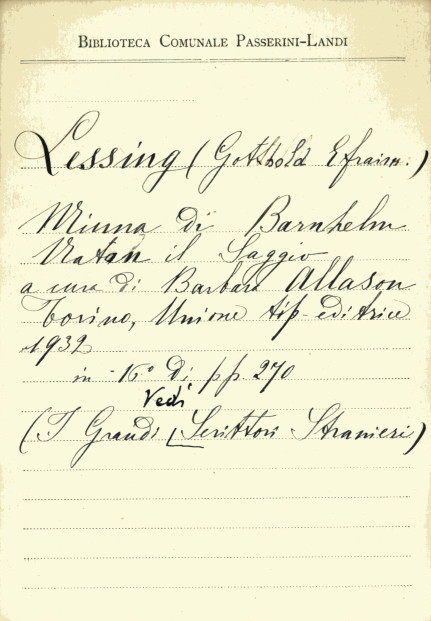 BIBLIOTECA COMUNALE PASSERINI-LANDI
Lessing (Gotthold Efraim.)
Minna di Barnhelm
Natan il Saggio
a cura di Barbara Allason
Torino, Unione tip. editrice
1932
in -16° di pp. 270
Vedi
(I Grandi Scrittori Stranieri)